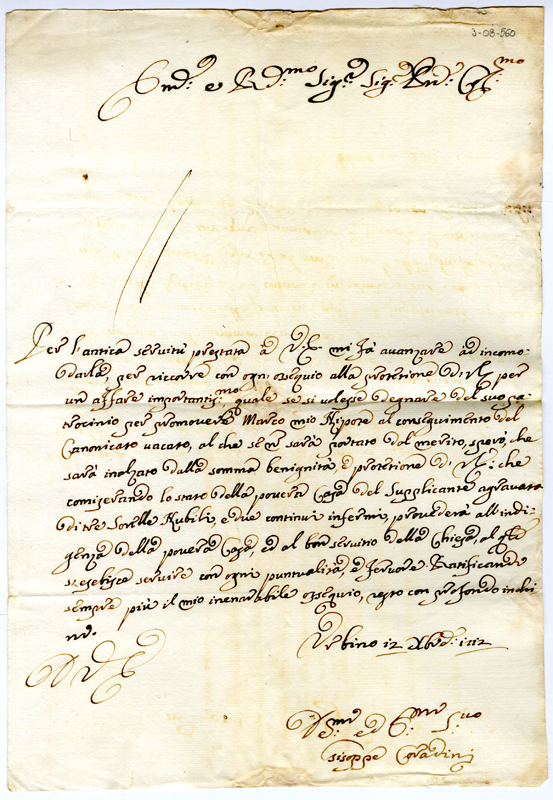 3-08-560
Em.º e R.d.mo Sig.r Sig.r Pad.
Per l'antica servitù prestata à V.E. mi fà avanzare ad incomo-
darla, per riccorre con ogni ossequio alla protetione di V.E. per
un affare importantis.mo quale se si volesse degnare del suo pa-
trocinio per promovere Marco mio Nipote al conseguimento del
Canonicato vacato, al che se ne sarà portato dal merito, spero, che
sarà inalzato dalla somma benignità, e protetione di V.E. che
comiserando lo stato della povera Casa del Supplicante agravata
di tre Sorelle Nubili, e due continui infermi, provederà all'indi-
genza della povera Casa, ed al bon servitio della Chiesa, al qle
si esebisce servire con ogni puntualità, e fervore Ratificando
sempre più il mio inenarabile ossequio, resto con profondo inchi
no.
Urbino 12 Xbre
D V E
ed
Giseppe Coradini